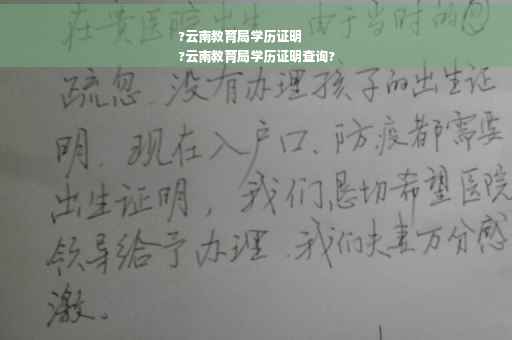 在贵医院出生，由于当时的
?云南教育局学历证明
?云南教育局学历证明查询?
疏忽、没有办理孩子的出生证
明、现在入户口、防疫都需要
出生证明，我们恳切希望医院
领导给予办理、我们夫妻万分感
激。